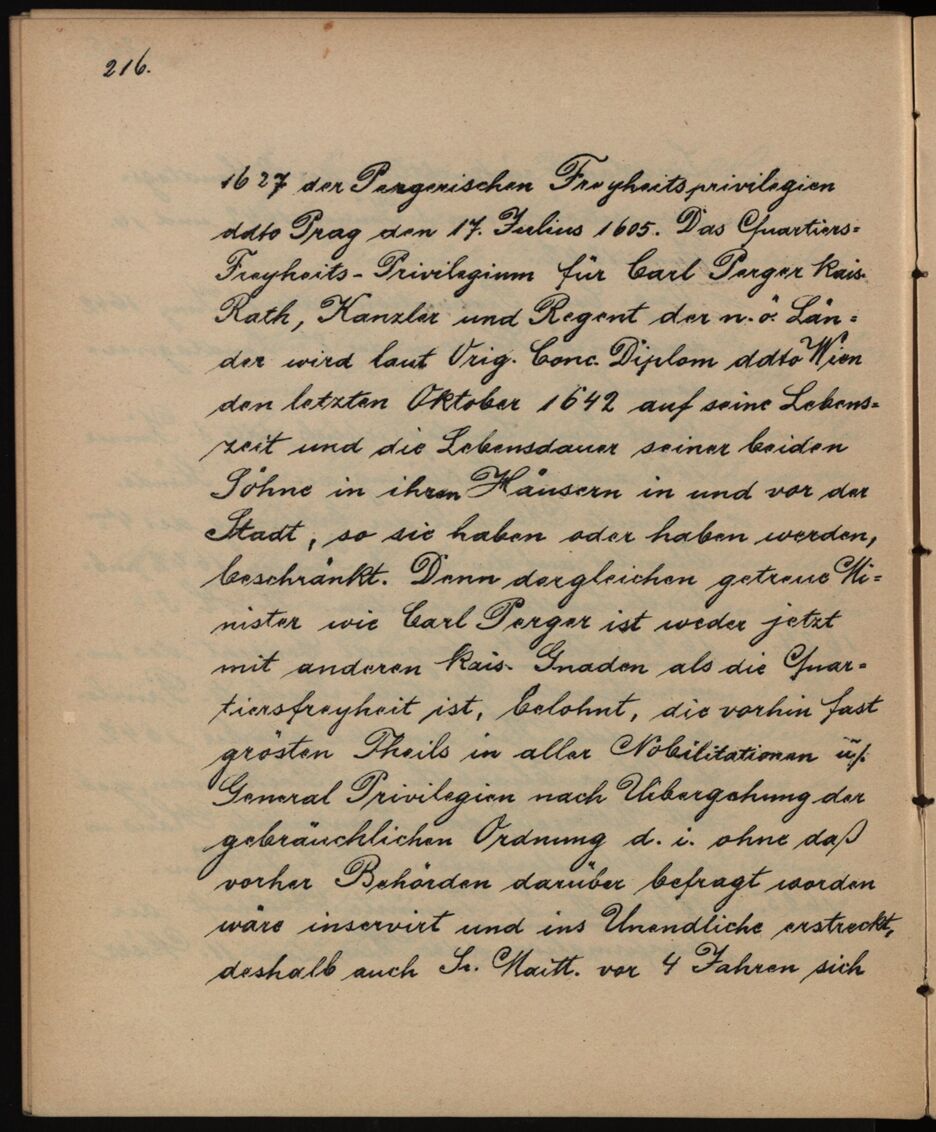 216.
1627 der Pergerischen Freyheitsprivilegien
ddto Prag den 17. Julius 1605. Das Quartiers=
Freyheits-Privilegium für Carl Perger kais.
Rath, Kanzler und Regent der n. ö. Län=
der wird laut Orig. Conc. Diplom ddto Wien
den letzten Oktober 1642 auf seine Lebens=
zeit und die Lebensdauer seiner beiden
Söhne in ihren Häusern in und vor der
Stadt, so sie haben oder haben werden,
beschränkt. Denn dergleichen getreue Mi=
nister wie Carl Perger ist weder jetzt
mit anderen kais. Gnaden als die Quar=
tiersfreyheit ist, belohnt, die vorhin fast
grösten Theils in aller Nobilitationen u.
General Privilegien nach Uibergehung der
gebräuchlichen Ordnung d. i. ohne daß
vorher Behörden darüber befragt worden
wäre inservirt und ins Unendliche erstreckt,
deshalb auch Sr. Maitt. vor 4 Jahren sich